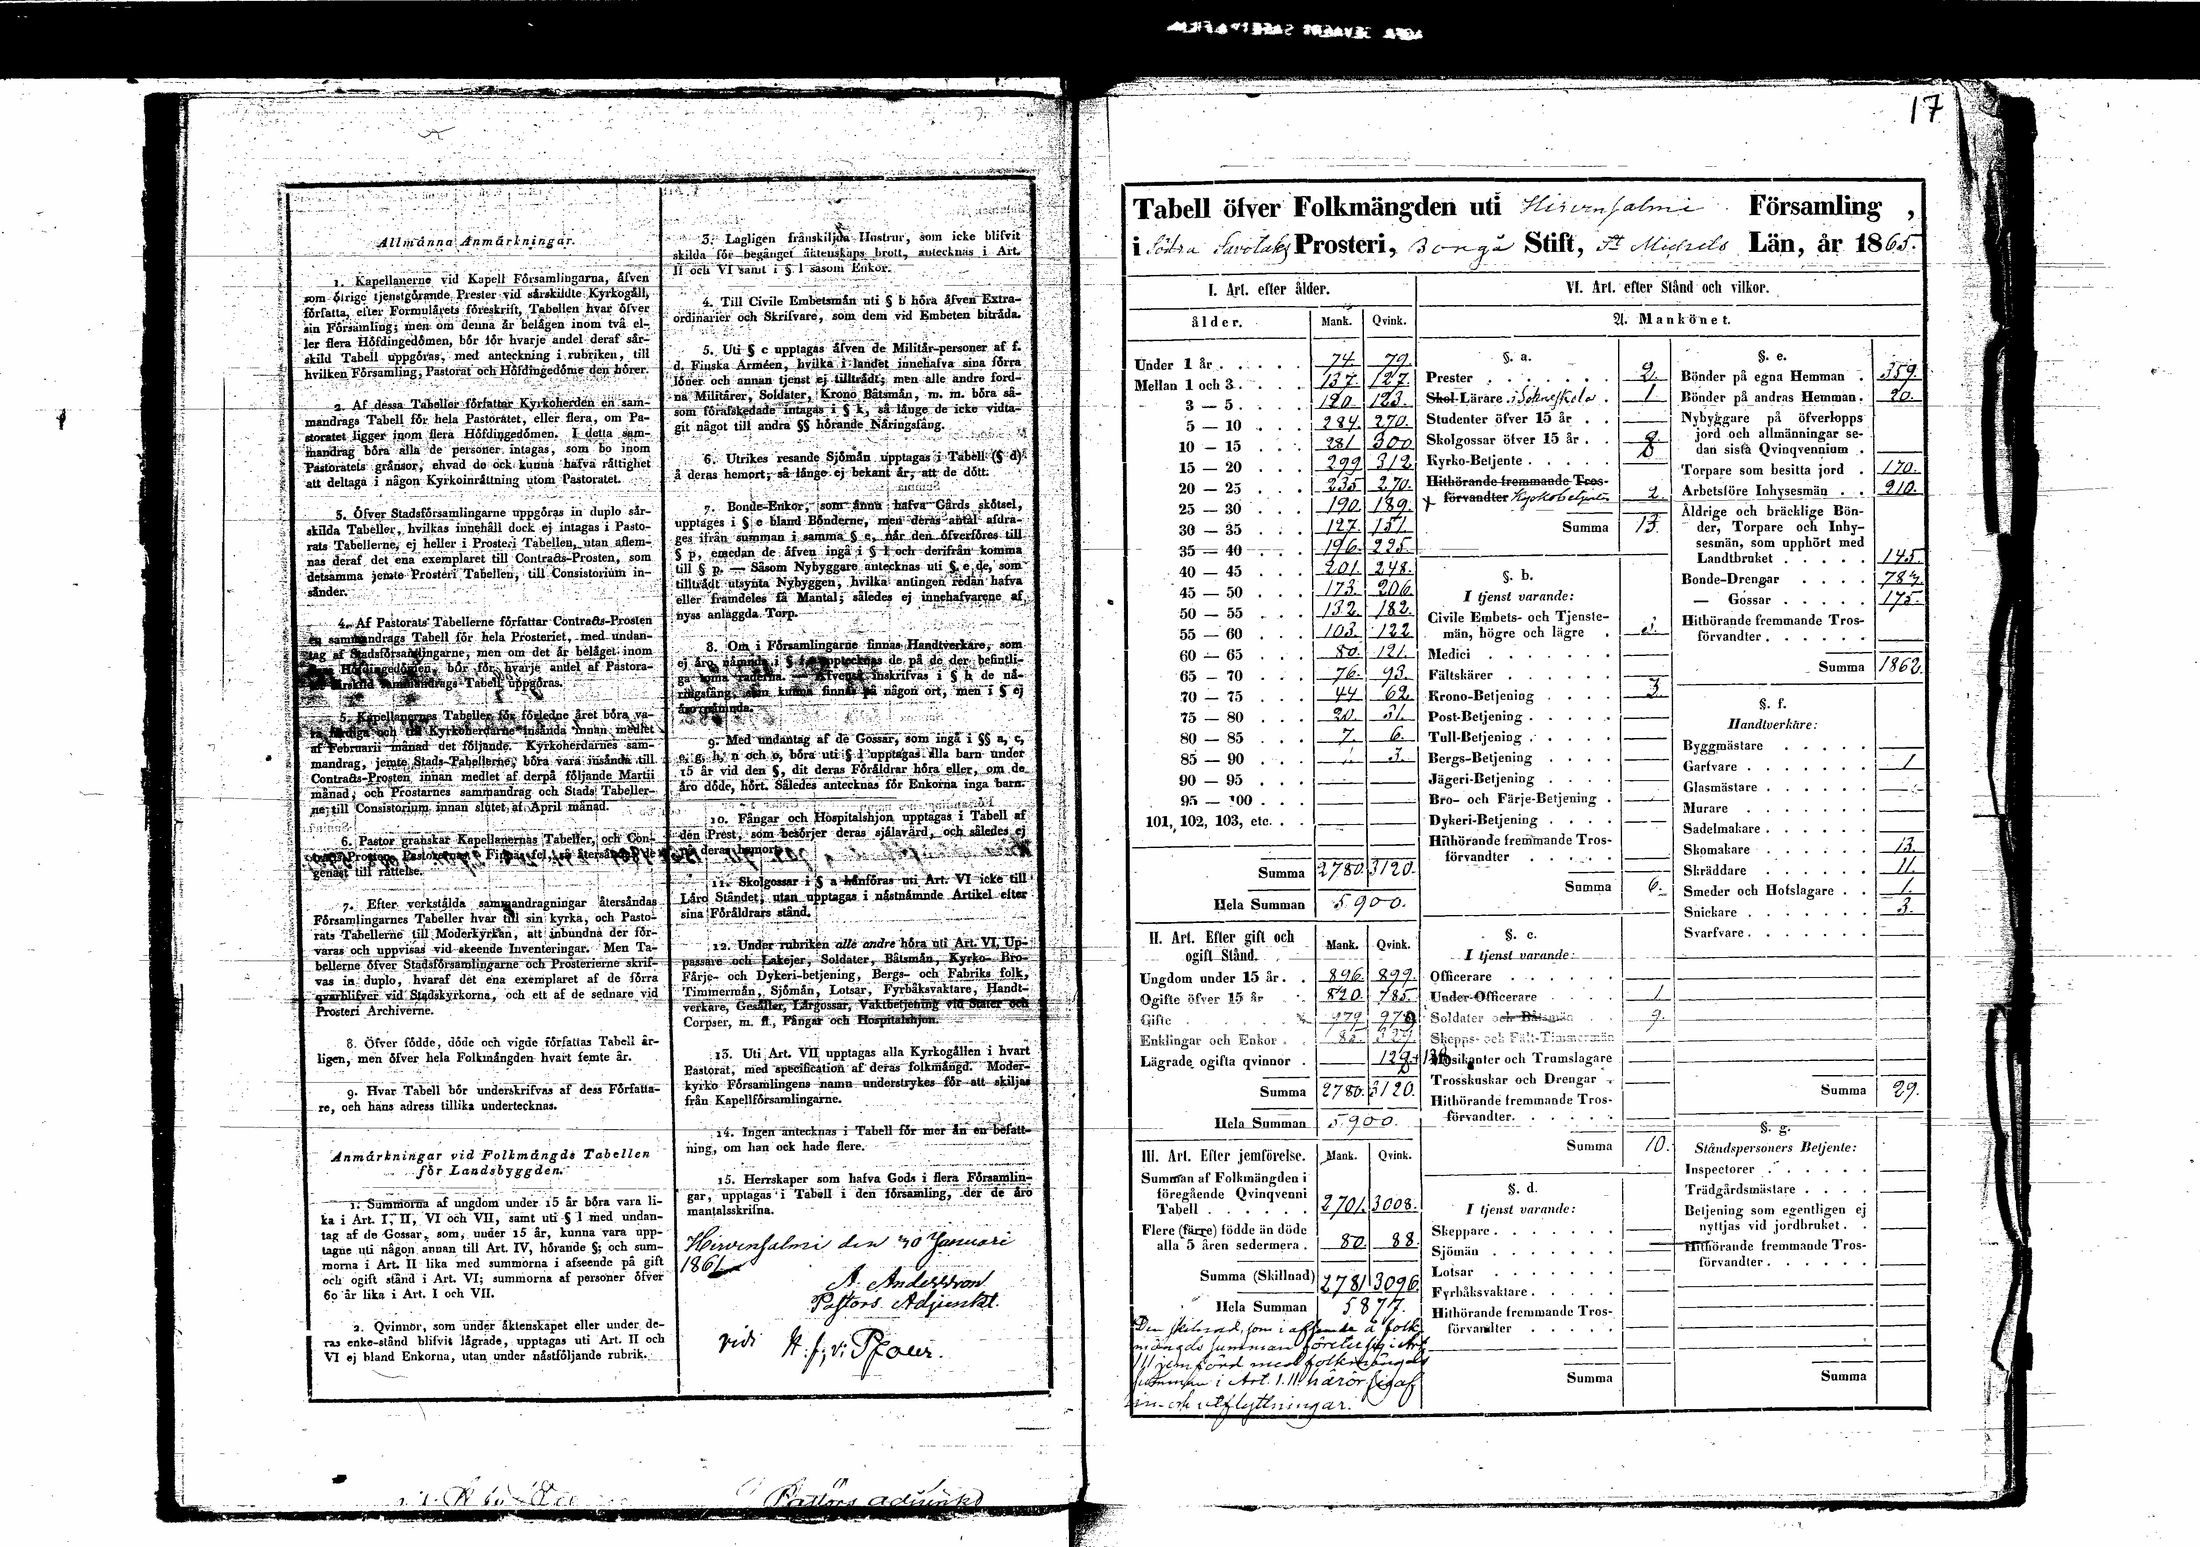 17
Allmänna Anmärkningar.
1. Kapellanerne vid Kapell Församlingarna, äfven
som ölrige tjenstgörande Prester vid särskildte Kyrkogäll,
författa, efter Formulärets föreskrift, Tabellen hvar öfver
sin Församling; men om denna är belägen inom två el-
ler flera Höfdingedömen, bör för hvarje andel deraf sär-
skild Tabell uppgöras, med anteckning i rubriken, till
hvilken Församling, Pastorat och Höfdingedöme den hörer.
2. Af dessa Tabeller författar Kyrkoherden en sam-
mandrags Tabell för hela Pastoratet, eller flera, om Pa-
storatet ligger inom flera Höfdingedömen. I detta sam-
mandrag böra alla de personer intagas, som bo inom
Pastoratets gränsor, ehvad de ock kunna hafva rättighet
att deltaga i någon Kyrkoinrättning utom Pastoratet.
3. Öfver Stadsförsamlingarne uppgöras in duplo sär-
skilda Tabeller, hvilkas innehåll dock ej intagas i Pasto-
rats Tabellerne, ej heller i Prosteri Tabellen, utan aflem-
nas deraf det ena exemplaret till Contracts-Prosten, som
detsamma jemte Prosteri Tabellen, till Consistorium in-
sänder.
4. Af Pastorats Tabellerne författar Contracts-Prosten
en sammandrags Tabell för hela Prosteriet, med undan-
tag af Stadsförsamlingarne, men om det är beläget inom
Höfdingedömen, bör för hvarje andel af Pastora-
särskild sammandrags Tabell uppgöras.
5. Kapellanernes Tabeller för förledne året böra va-
ra färdiga och till Kyrkoherdarne insända innan medlet
af Februarii månad det följande. Kyrkoherdarnes sam-
mandrag, jemte Stads-Tabellerne, böra vara insända till
Contracts-Prosten innan medlet af derpå följande Martii
månad; och Prostarnes sammandrag och Stads Tabeller-
ne till Consistorium innan slutet af April månad.
6. Pastor granskar Kapellanernas Tabeller, och Con-
tracts Prosten Pastorernas. Finnas fel, så återsändas de
genast till rättelse.
7. Efter verkställda sammandragningar återsändas
Församlingarnes Tabeller hvar till sin kyrka, och Pasto-
rats Tabellerne till Moderkyrkan, att inbundna der för-
varas och uppvisas vid skeende Inventeringar. Men Ta-
bellerne öfver Stadsförsamlingarne och Prosterierne skrif-
vas in duplo, hvaraf det ena exemplaret af de förra
qvarblifver vid Stadskyrkorna, och ett af de sednare vid
Prosteri Archiverne.
8. Öfver födde, döde och vigde författas Tabell år-
ligen, men öfver hela Folkmängden hvart femte år.
9. Hvar Tabell bör underskrifvas af dess Författa-
re, och hans adress tillika undertecknas.
Anmärkningar vid Folkmängds Tabellen
för Landsbyggden.
1. Summorna af ungdom under 15 år böra vara li-
ka i Art. I, II, VI och VII, samt uti § l med undan-
tag af de Gossar, som, under 15 år, kunna vara upp-
tagne uti någon annan till Art. IV, hörande §; och sum-
morna i Art. II lika med summorna i afseende på gift
och ogift stånd i Art. VI; summorna af personer öfver
60 år lika i Art. I och VII.
2. Qvinnor, som under äktenskapet eller under de-
ras enke-stånd blifvit lägrade, upptagas uti Art. II och
VI ej bland Enkorna, utan under nästföljande rubrik.
3. Lagligen frånskiljda Hustrur, som icke blifvit
skilda för begånget äktenskaps brott, antecknas i Art.
II och VI samt i § l såsom Enkor.
4. Till Civile Embetsmän uti § b höra äfven Extra-
ordinarier och Skrifvare, som dem vid Embeten biträda.
5. Uti § c upptagas äfven de Militär-personer af f.
d. Finska Arméen, hvilka i landet innehafva sina förra
löner och annan tjenst ej tillträdt; men alle andre ford-
na Militärer, Soldater, Krono Båtsmän, m. m. böra så-
som förafskedade intagas i § k, så länge de icke vidta-
git något till andra §§ hörande Näringsfång.
6. Utrikes resande Sjömän upptagas i Tabell (§ d)
å deras hemort, så länge ej bekant är, att de dött.
7. Bonde-Enkor, som ännu hafva Gårds skötsel,
upptages i § e bland Bönderne, men deras antal afdra-
ges ifrån summan i samma § e, når den öfverföres till
§ p, emedan de äfven ingå i § l och derifrån komma
till § p. — Såsom Nybyggare antecknas uti § e de, som
tillträdt utsynta Nybyggen, hvilka antingen redan hafva
eller framdeles få Mantal; således ej innehafvarene af
nyss anlaggda Torp.
8. Om i Församlingarne finnas Handtverkare, som
ej äro nämnda i § f, upptecknas de på de der befintli-
ga toma raderna. — Äfvensk inskrifvas i § h de nä-
ringsfång, som kunna finnas på någon ort, men i § ej
äro nämnda.
9. Med undantag af de Gossar, som ingå i §§ a, c,
e, g, h, n och o, böra uti § l upptagas alla barn under
15 år vid den §, dit deras Föräldrar höra eller, om de
äro döde, hört. Således antecknas för Enkorna inga barn.
10. Fångar och Hospitalshjon upptagas i Tabell af
den Prest, som besörjer deras själavård, och således ej
på deras hemort.
11. Skolgossar i § a hänföras uti Art. VI icke till
Läro Ståndet; utan upptagas i nästnämnde Artikel efter
sina Föräldrars stånd.
12. Under rubriken alle andre höra uti Art. VI, Up-
passare och Lakejer, Soldater, Båtsmän, Kyrko- Bro-
Färje- och Dykeri-betjening, Bergs- och Fabriks folk,
Timmermän, Sjömän, Lotsar, Fyrbåksvaktare, Handt-
verkare, Gesäller, Lärgossar, Vaktbetjening vid Stater och
Corpser, m. fl., Fångar och Hospitalshjon.
13. Uti Art. VII upptagas alla Kyrkogällen i hvart
Pastorat, med specification af deras folkmängd. Moder-
kyrko Församlingens namn understrykes för att skiljas
från Kapellförsamlingarne.
14. Ingen antecknas i Tabell för mer än en befatt-
ning, om han ock hade flere.
15. Herrskaper som hafva Gods i flera Församlin-
gar, upptagas i Tabell i den församling, der de äro
mantalsskrifna.
Hirvensalmi den 30 Januari
1861
A. Andersson
Pastors Adjunkt.
vidi
Pastors adjunkt
Tabell öfver Folkmängden uti Hirvensalmi Församling,
i Södra Savolaks Prosteri, Borgå Stift, St Michels Län, år 1865.
I. Art. efter ålder.
ålder. Mank. Qvink.
Under 1 år 74. 79.
Mellan 1 och 3 137. 127.
3 — 5 120. 123.
5 — 10 284. 270.
10 — 15 281 300
15 — 20 299 312
20 — 25 235 270.
25 — 30 190 189.
30 — 35 127. 151.
35 — 40 196. 225.
40 — 45 201. 248.
45 — 50 173. 206
50 — 55 132. 182.
55 — 60 103. 122
60 — 65 80. 121.
65 — 70 76. 93.
70 — 75 44 62.
75 — 80 20. 31.
80 — 85 7. 6.
85 — 90 3.
90 — 95
95 — 100
101, 102, 103, etc.
Summa 2780. 3120.
Hela Summan 5900.
II. Art. Efter gift och
ogift Stånd. Mank. Qvink.
Ungdom under 15 år 896. 899.
Ogifte öfver 15 år 820. 785.
Gifte 979
Enklingar och Enkor 85.
Lägrade ogifta qvinnor
Summa 2780. 3120.
Hela Summan 5900.
III. Art. Efter jemförelse. Mank. Qvink.
Summan af Folkmängden i
föregående Qvinqvenni
Tabell 2701. 3008.
Flere (färre) födde än döde
alla 5 åren sedermera 80. 88.
Summa (Skillnad) 2781 3096.
Hela Summan 5877.
Den skilnad, som i afseende å folk-
mängds summan företer sig i Art.
III jemförd med folkmängds
summan i Art. I. II härör sig af
in- och utflyttningar.
VI. Art. efter Stånd och vilkor.
A. Mankönet.
§. a.
Prester 2.
Skol-Lärare i Sokneskola 1
Studenter öfver 15 år
Skolgossar öfver 15 år
Kyrko-Betjente
Hithörande fremmande Tros-
förvandter Kyrkobetjente 2.
Summa 13.
§. b.
I tjenst varande:
Civile Embets- och Tjenste-
män, högre och lägre 3.
Medici
Fältskärer
Krono-Betjening 3.
Post-Betjening
Tull-Betjening
Bergs-Betjening
Jägeri-Betjening
Bro- och Färje-Betjening
Dykeri-Betjening
Hithörande fremmande Tros-
förvandter
Summa 6.
§. c.
I tjenst varande:
Officerare
Under-Officerare 1
Soldater och Båtsmän 9.
Skepps- och Fält-Timmermän
Musikanter och Trumslagare
Trosskuskar och Drengar
Hithörande fremmande Tros-
förvandter.
Summa 10.
§. d.
I tjenst varande:
Skeppare
Sjömän
Lotsar
Fyrbåksvaktare
Hithörande fremmande Tros-
förvandter
Summa
§. e.
Bönder på egna Hemman 359.
Bönder på andras Hemman 20.
Nybyggare på öfverlopps
jord och allmänningar se-
dan sista Qvinqvennium
Torpare som besitta jord 170.
Arbetsföre Inhysesmän 210.
Åldrige och bräcklige Bön-
der, Torpare och Inhy-
sesmän, som upphört med
Landtbruket 145.
Bonde-Drengar
— Gossar 175.
Hithörande fremmande Tros-
förvandter
Summa 1862.
§. f.
Handtverkare:
Byggmästare
Garfvare 1
Glasmästare
Murare
Sadelmakare
Skomakare 13.
Skräddare 11.
Smeder och Hofslagare 1.
Snickare 3.
Svarfvare
Summa 29.
§. g.
Ståndspersoners Betjente:
Inspectorer
Trädgårdsmästare
Betjening som egentligen ej
nyttjas vid jordbruket
Hithörande fremmande Tros-
förvandter
Summa